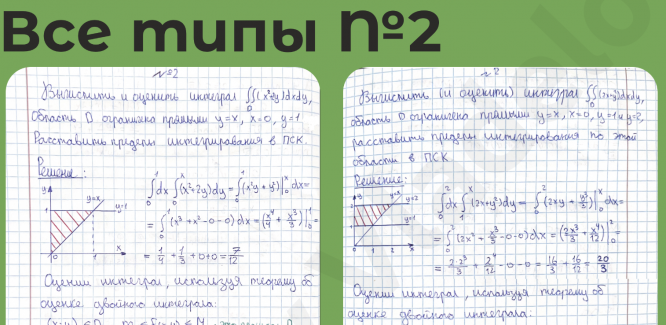 Все типы №2
№2
Вычислить и оценить интеграл ∬(x²+2y)dxdy,
D
область D ограничена прямыми y=x, x=0, y=1
Расставить пределы интегрирования в ПСК.
Решение:
∫₀¹dx∫₀ˣ(x²+2y)dy=∫₀¹(x²y+y²)|₀ˣdx=
=∫₀¹(x³+x²-0-0)dx=(x⁴/4+x³/3)|₀¹=
=1/4+1/3+0+0=7/12
y
y=x
1
y=1
0
1
x
Оценим интеграл, используя теорему об
оценке двойного интеграла:
№2
Вычислить (и оценить) интеграл ∬(2x+y²)dxdy,
D
область D ограничена прямыми y=x, x=0, y=1 и y=2,
расставить пределы интегрирования по этой
области в ПСК
Решение:
∫₀²dx∫₁ˣ(2x+y²)dy=∫₀²(2xy+y³/3)|₀ˣdx=
=∫₀²(2x²+x³/3-0-0)dx=(2x³/3+x⁴/12)|₀²=
=2·2³/3+2⁴/12-0-0=16/3+16/12=20/3
y
y=x
2
y=2
1
y=1
0
1
2
x
Оценим интеграл, используя теорему об
оценке двойного интеграла: